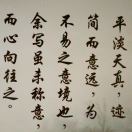 平淡天真，迹
简而意远，为
不易之意境也，
余写虽未称意，
而心向往之。